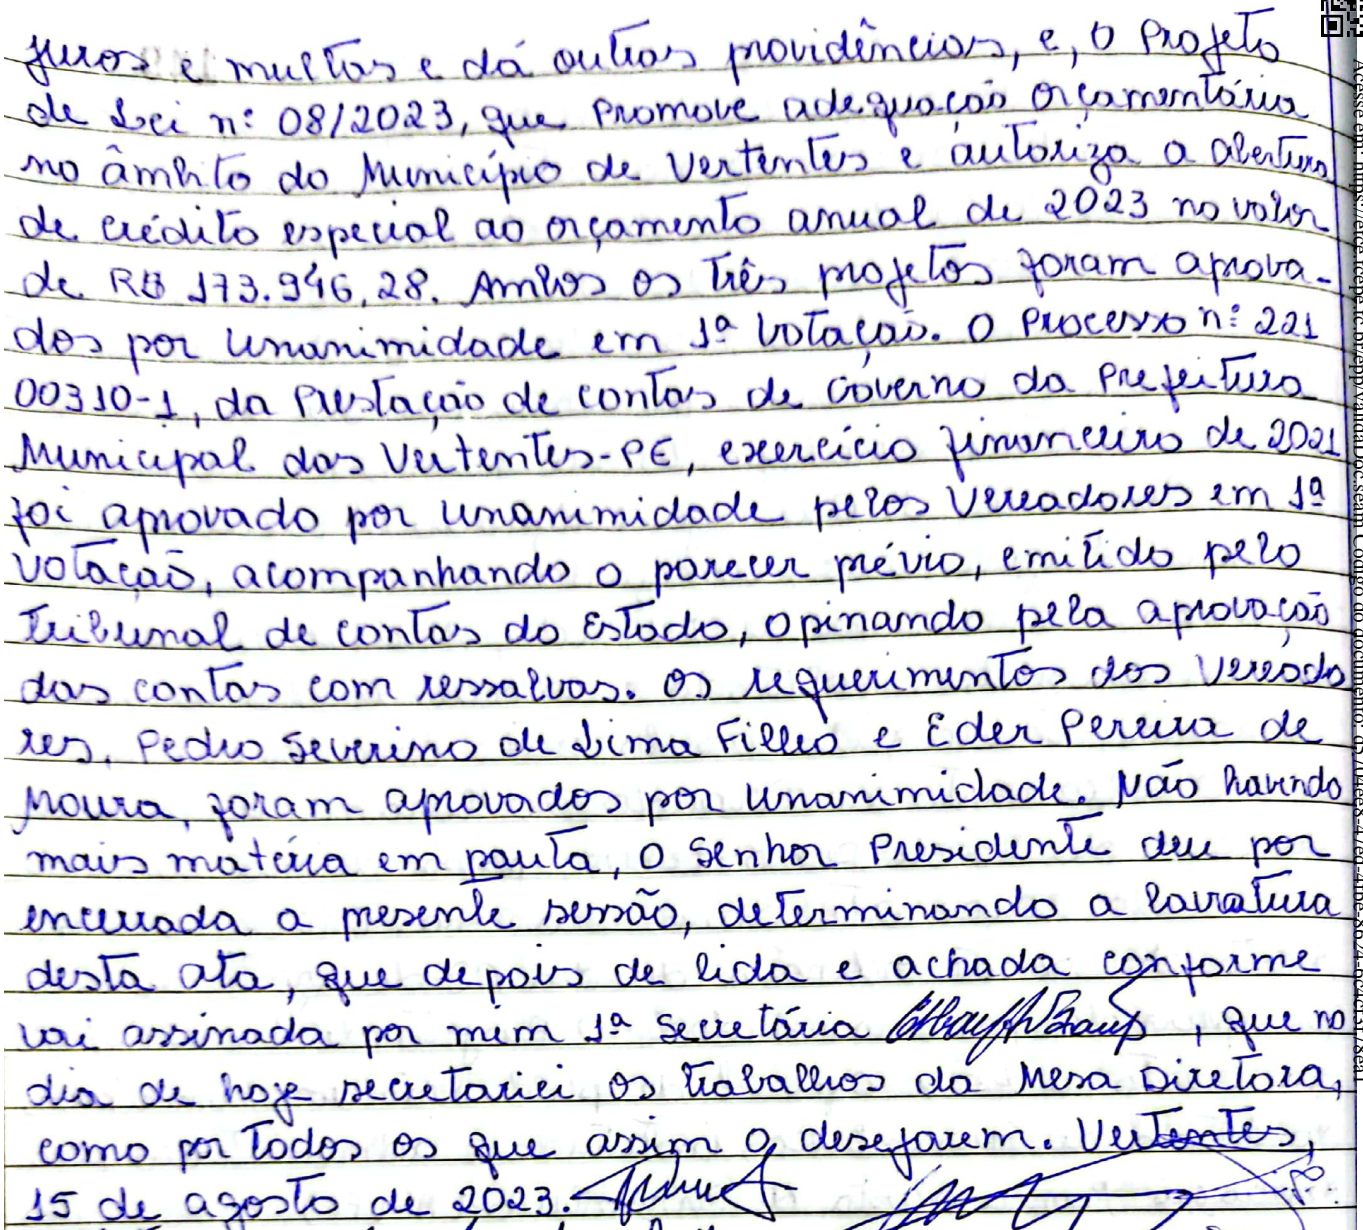 juros e multas e dá outras providências, e, o Projeto
de Lei nº 08/2023, que promove adequação orçamentária
no âmbito do Município de Vertentes e autoriza a abertura
de crédito especial ao orçamento anual de 2023 no valor
de R$ 173.946,28. Ambos os três projetos foram aprova-
dos por unanimidade em 1ª votação. O Processo nº 221
00310-1, da Prestação de contas de Governo da Prefeitura
Municipal das Vertentes-PE, exercício financeiro de 2021
foi aprovado por unanimidade pelos Vereadores em 1ª
votação, acompanhando o parecer prévio, emitido pelo
Tribunal de contas do Estado, opinando pela aprovação
das contas com ressalvas. Os requerimentos dos Vereado
res, Pedro Severino de Lima Filho e Eder Pereira de
Moura, foram aprovados por unanimidade. Não havendo
mais matéria em pauta, o Senhor Presidente deu por
encerrada a presente sessão, determinando a lavratura
desta ata, que depois de lida e achada conforme
vai assinada por mim 1ª Secretária , que no
dia de hoje secretariei os trabalhos da Mesa Diretora,
como por todos os que assim o desejarem. Vertentes,
15 de agosto de 2023.